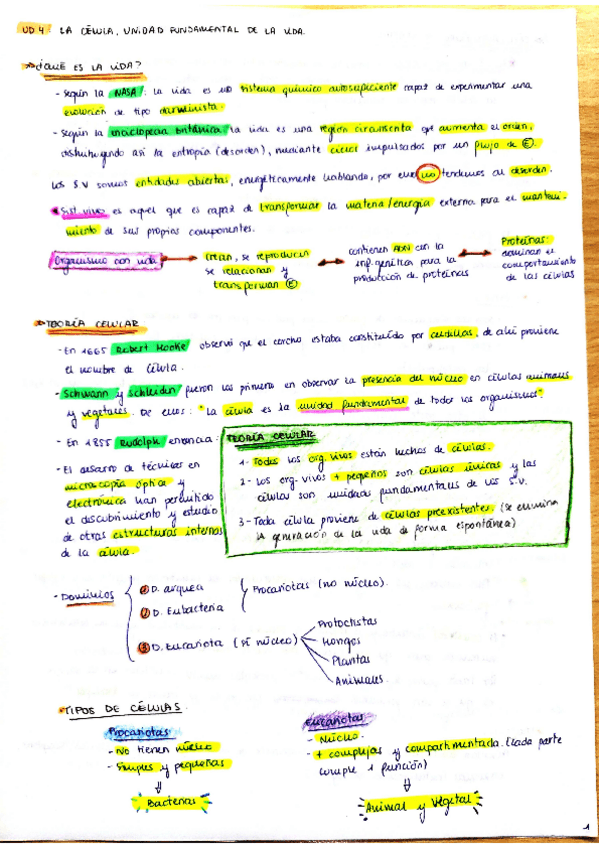 UD 4: LA CÉLULA, UNIDAD FUNDAMENTAL DE LA VIDA.
¿QUÉ ES LA VIDA?
- Según la NASA: la vida es un sistema químico autosuficiente capaz de experimentar una
evolución de tipo darwinista.
- Según la enciclopedia británica: la vida es una región circunscrita que aumenta el orden,
disminuyendo así la entropía (desorden), mediante ciclos impulsados por un flujo de E.
Los S.V somos entidades abiertas, energéticamente hablando, por eso no tendemos al desorden.
Sist. vivo es aquel que es capaz de transformar la materia/energía externa para el manteni-
miento de sus propios componentes.
Organismo con vida
Crean, se reproducen
se relacionan y
transforman E
contienen ADN con la
inf. genética para la
producción de proteínas
Proteínas:
dominan el
comportamiento
de las células
TEORÍA CELULAR
- En 1665 Robert Hooke observó que el corcho estaba constituido por celdillas, de ahí proviene
el nombre de célula.
- Schwann y Schleiden fueron los primeros en observar la presencia del núcleo en células animales
y vegetales. De ellos: "La célula es la unidad fundamental de todos los organismos".
- En 1855 Rudolph enuncia:
- El desarrollo de técnicas en
microscopía óptica y
electrónica han permitido
el descubrimiento y estudio
de otras estructuras internas
de la célula.
TEORÍA CELULAR
1- Todos los org. vivos están hechos de células.
2- Los org. vivos + pequeños son células únicas y las
células son unidades fundamentales de los S.V.
3- Toda célula proviene de células preexistentes. (se elimina
la generación de la vida de forma espontánea)
- Dominios
1 D. arquea
2 D. Eubacteria
Procariotas (no núcleo).
3 D. Eucariota (sí núcleo)
Protoctistas
Hongos
Plantas
Animales.
TIPOS DE CÉLULAS.
Procariotas
- No tienen núcleo
- Simples y pequeñas
⇓
Bacterias
Eucariotas
- Núcleo.
- + complejas y compartimentada. (cada parte
cumple 1 función)
⇓
Animal y Vegetal
1